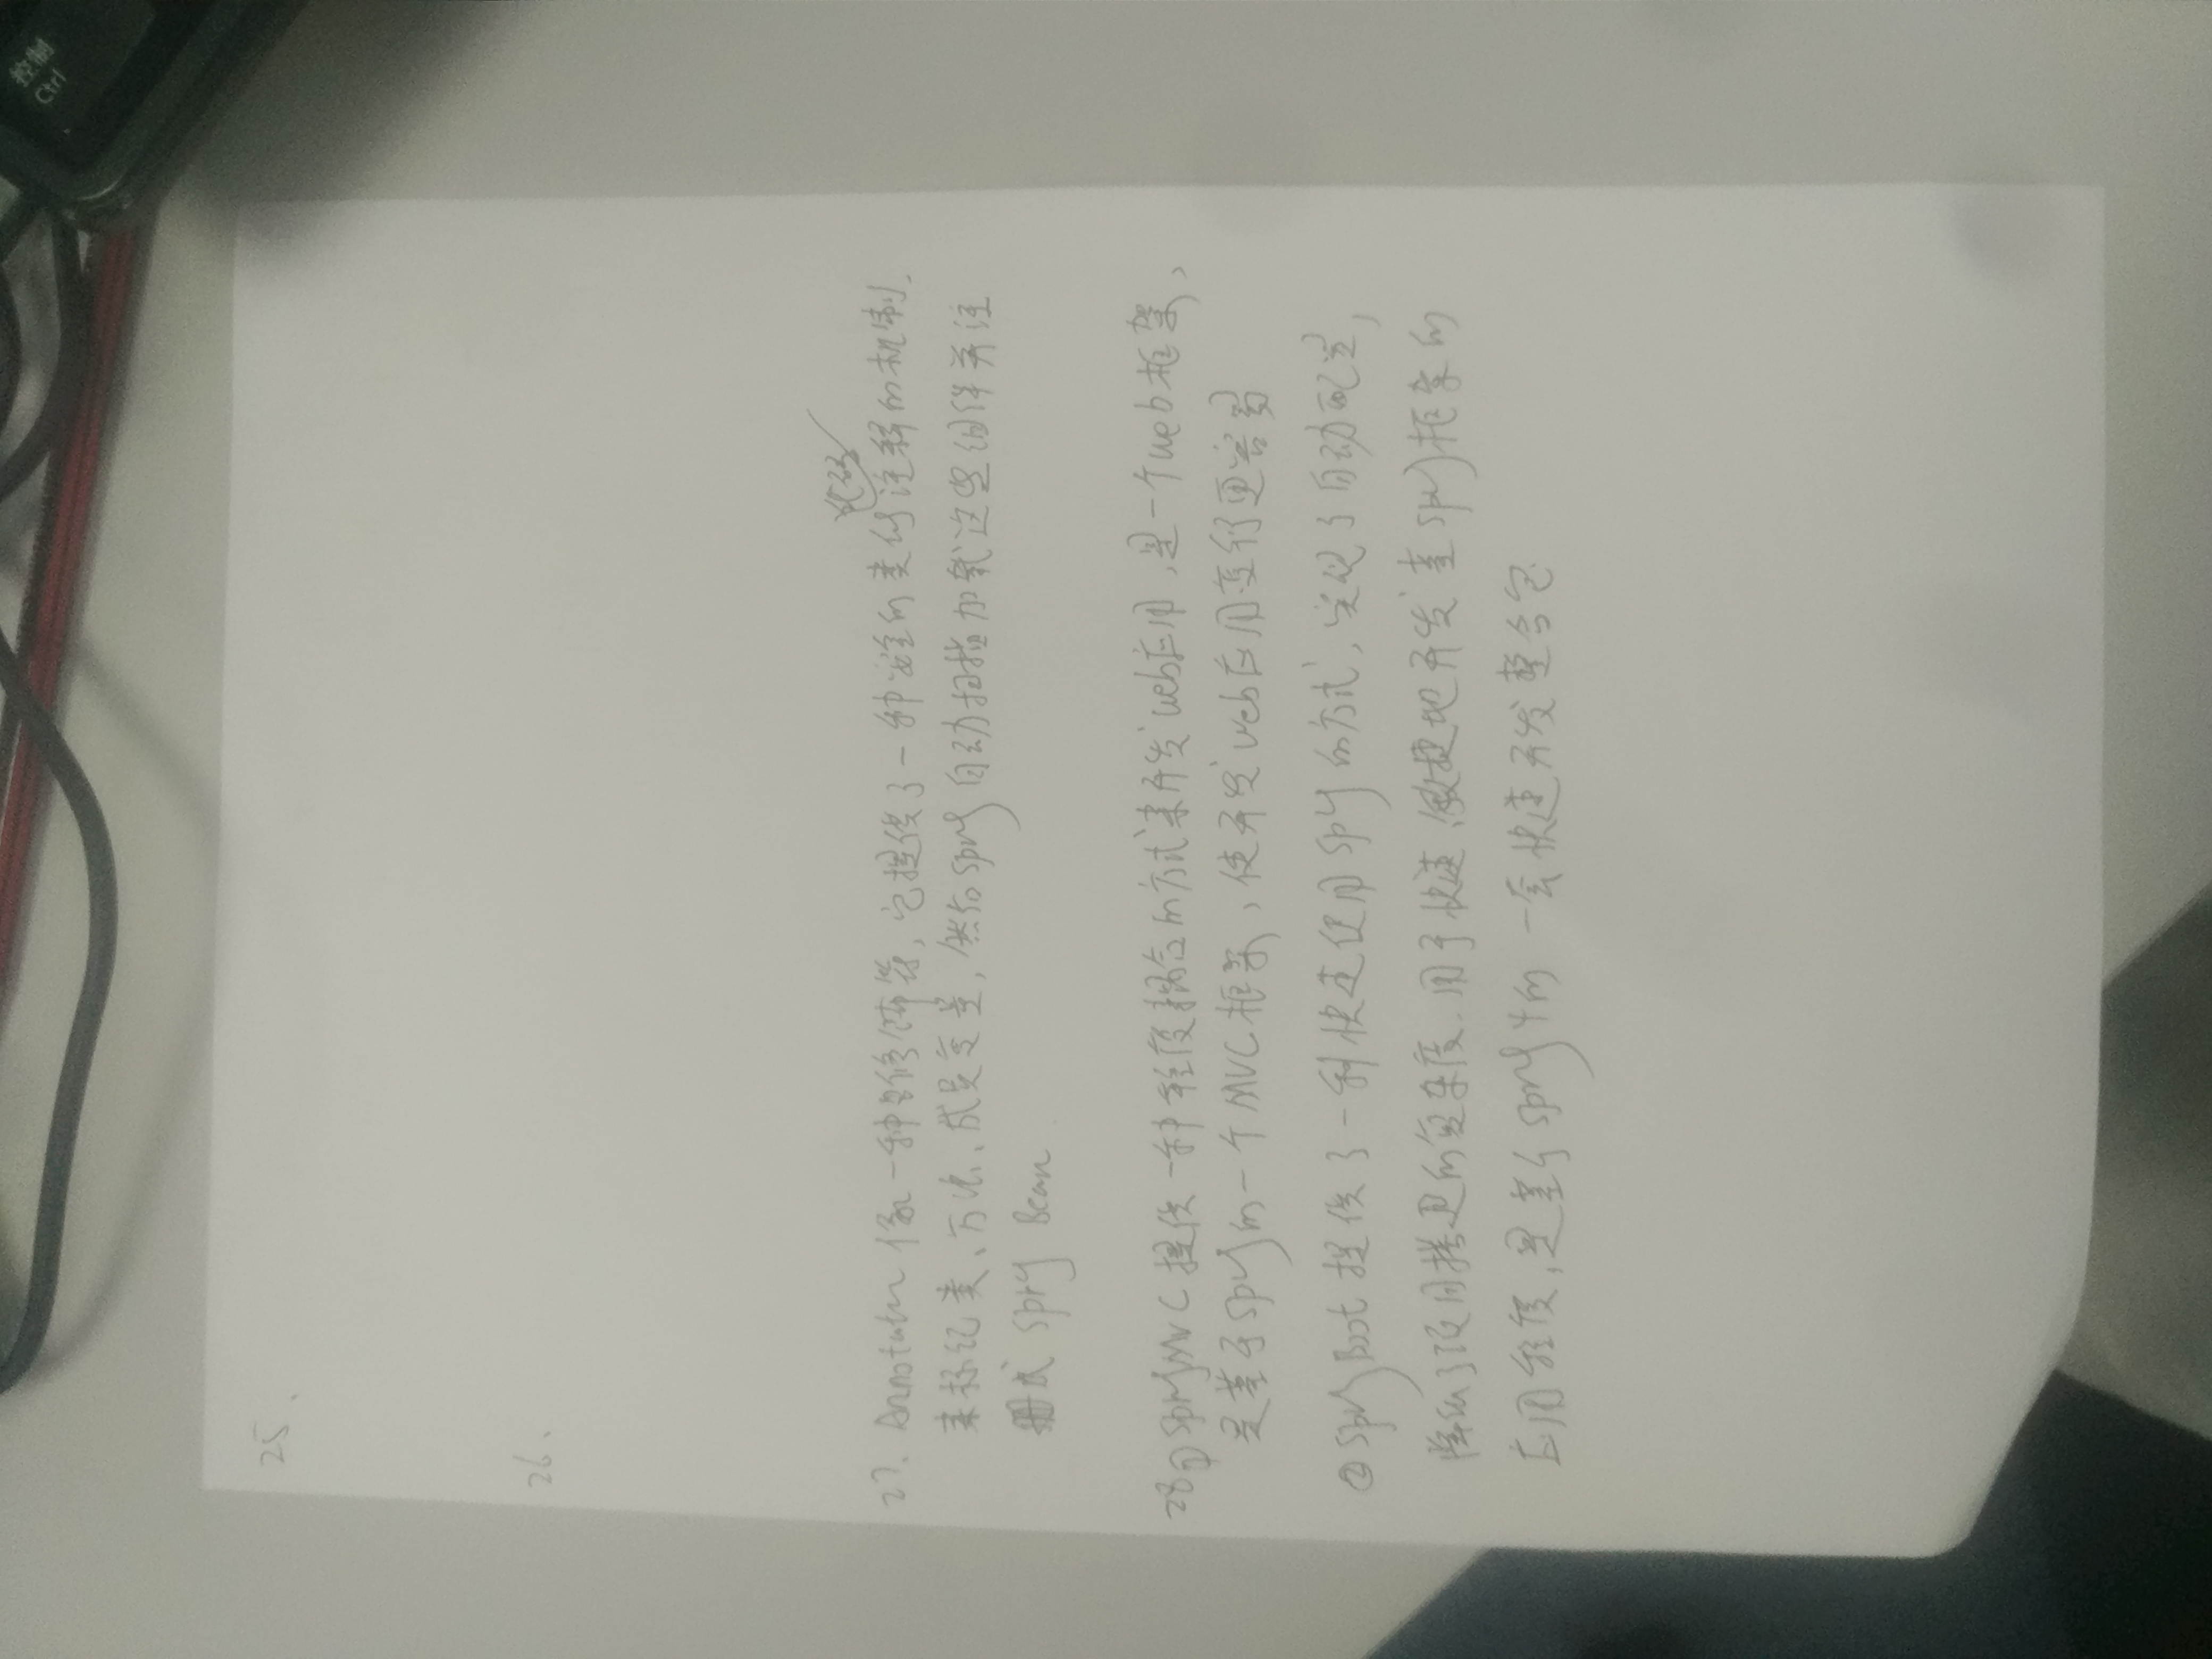 控制
Ctrl
25.
26.
27. Annotation 像一种修饰符,它提供了一种 的类似注释的机制.
来标记类、方法、成员变量,然后Spring自动扫描加载这里的 并注
册成 Spring Bean
28① SpringMVC 提供一种轻度耦合的方式来开发web应用,是一个web框架,
是基于Spring的一个MVC框架,使开发web应用变得更容易
② Spring Boot 提供了一种快速使用Spring的方式,实现了自动配置,
降低了项目搭建的复杂度.用于快速、敏捷地开发 Spring框架的
应用程度,是基于Spring4的一套快速开发整合包